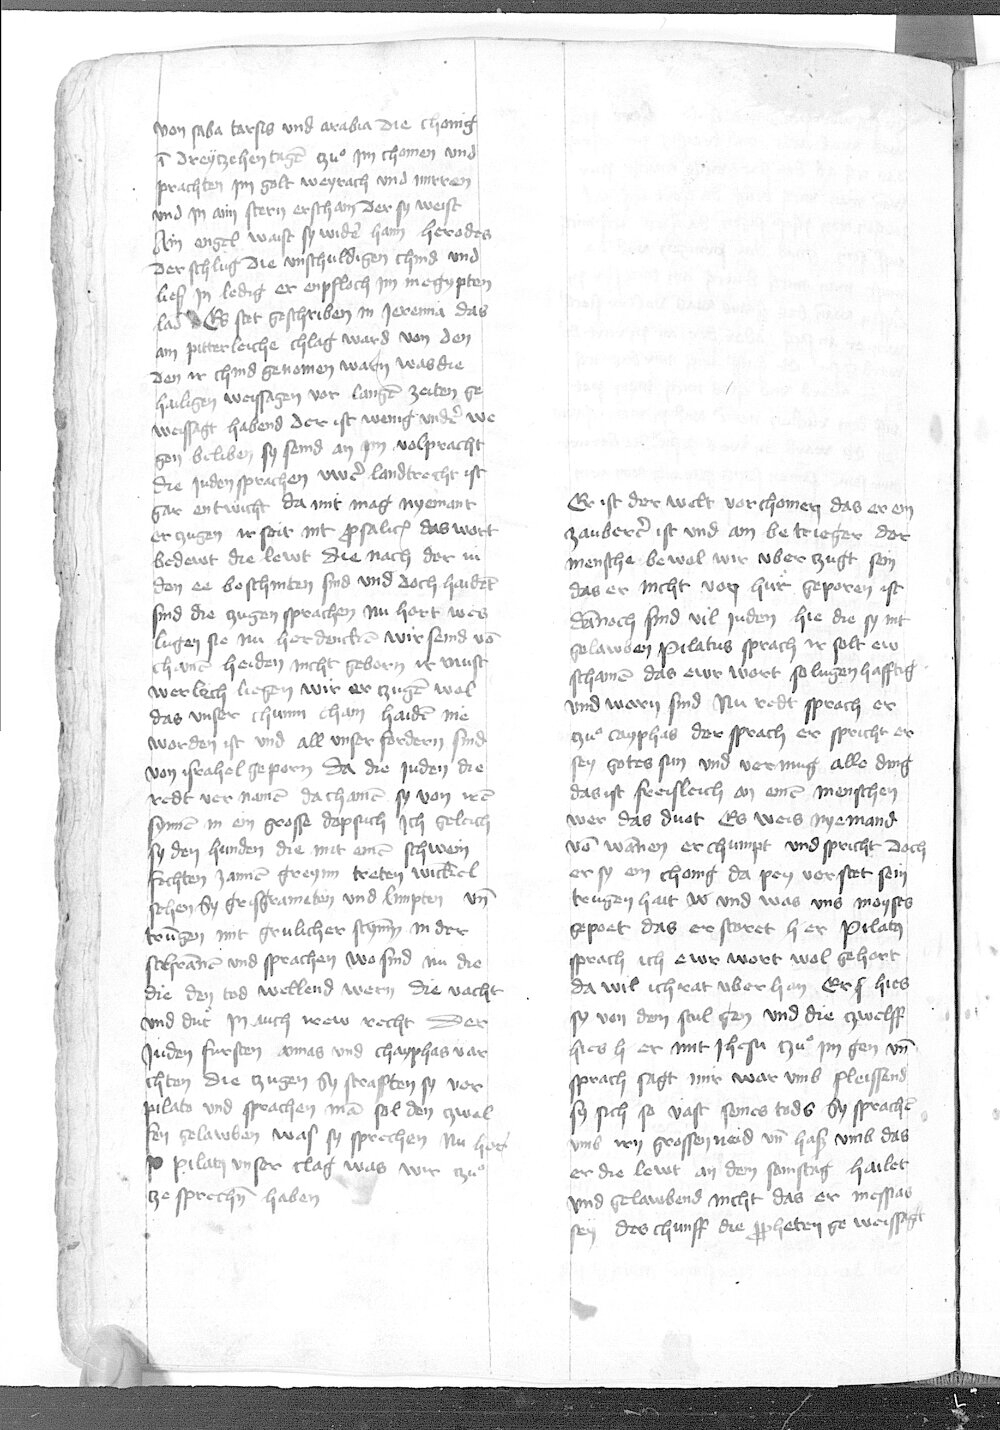 von saba tarsis vnd arabia die chonig
ī dreÿtzehen tagē tzuͦ jm chomen vnd
prachten jm golt weyrach vnd mirren
vnd jn ain stern erscham der sy weist
Ain engel waist sy widē haim herodes
der schlug die vnschuldigen chind vnd
lies jn ledig er enpfloch jm in egypten
lād Es stet geschriben in Jeremia das
am pitterleiche chlag ward von den
den ir chind genomen warn was die
hailigen weissagen vor langē zeiten ge
weissagt habend der ist wenig vndē we
gen beliben sy seind an im volpracht
die juden sprachen vwē landtrecht ist
gar entwicht da mit mag nyemant
er zugen ir seit mt psalich das wort
bedewt die lewt die nach der iu
den ee beschniten sind vnd doch haidē
sind die tzugen sprachen nu hort wes
lugen sie nu herdenckē wir seind vō
chainē heiden nicht geborn ir must
werlich liegen wir er tzugē wol
das vnser chunn cham haidē nie
worden ist vnd all vnser fordern sind
von israhel geporn Da die juden die
redt ver namē da chamē sy von irē
synnē in ein grosse dopsuch ich geleich
sy den hunden die mit einē schwein
fichten zannē greynn treten winckel
sehen Sy grisgrameten vnd limpten vn̄
trūgen mit grulicher stymm in der
schrānē vnd sprachen wo sind nu die
die den tod wellend wern die vacht
vnd dut jn auch irew recht Der
Juden fursten annas vnd chayphas var
chten die tzugen Sy strafften sy vor
pilato vnd sprachen mā sol den tzwel
fen gelawben was sy sprechen Nu hort
Pilatꝰ vnser clag was wir tzuͦ
ze sprechn̄ haben
Er ist der welt vorchomen das er ein
zaubērē ist vnd am be trieger der
mensche bewol wir vber tzugt sein
das er nicht von hur geporen ist
dānoch sind vil juden hie die sy nit
gelawben Pilatus sprach ir solt ew
schamē das ewr wort so lugenhafftig
vnd worn sind Nu redt sprach er
tzuͦ cayphas der sprach er spricht er
sey gotes sun vnd vermug alle ding
das ist freisleich an einē menschen
wer das duot Es weis nyemand
vō wānen er chumpt vnd spricht doch
er sy ein chonig da pey verstet sein
trugen hait w vnd was vns moyses
gepoet das erstoret h er Pilatꝰ
sprach ich ewr wort wol gehort
da wil ich rat vber han Er hies
sy von dem stul gen vnd die tzwelff
hies h er mit Jhesu tzuͦ im gen vn̄
sprach sagt mir war vmb fleissend
sy sich so vast seines tods Sy sprachē
vmb irn grossen neid vn̄ hass vmb das
er die lewt an dem samstag hailet
vnd gelawbend nicht das er messias
sey des chunfft die pͣpheten ge weissagt